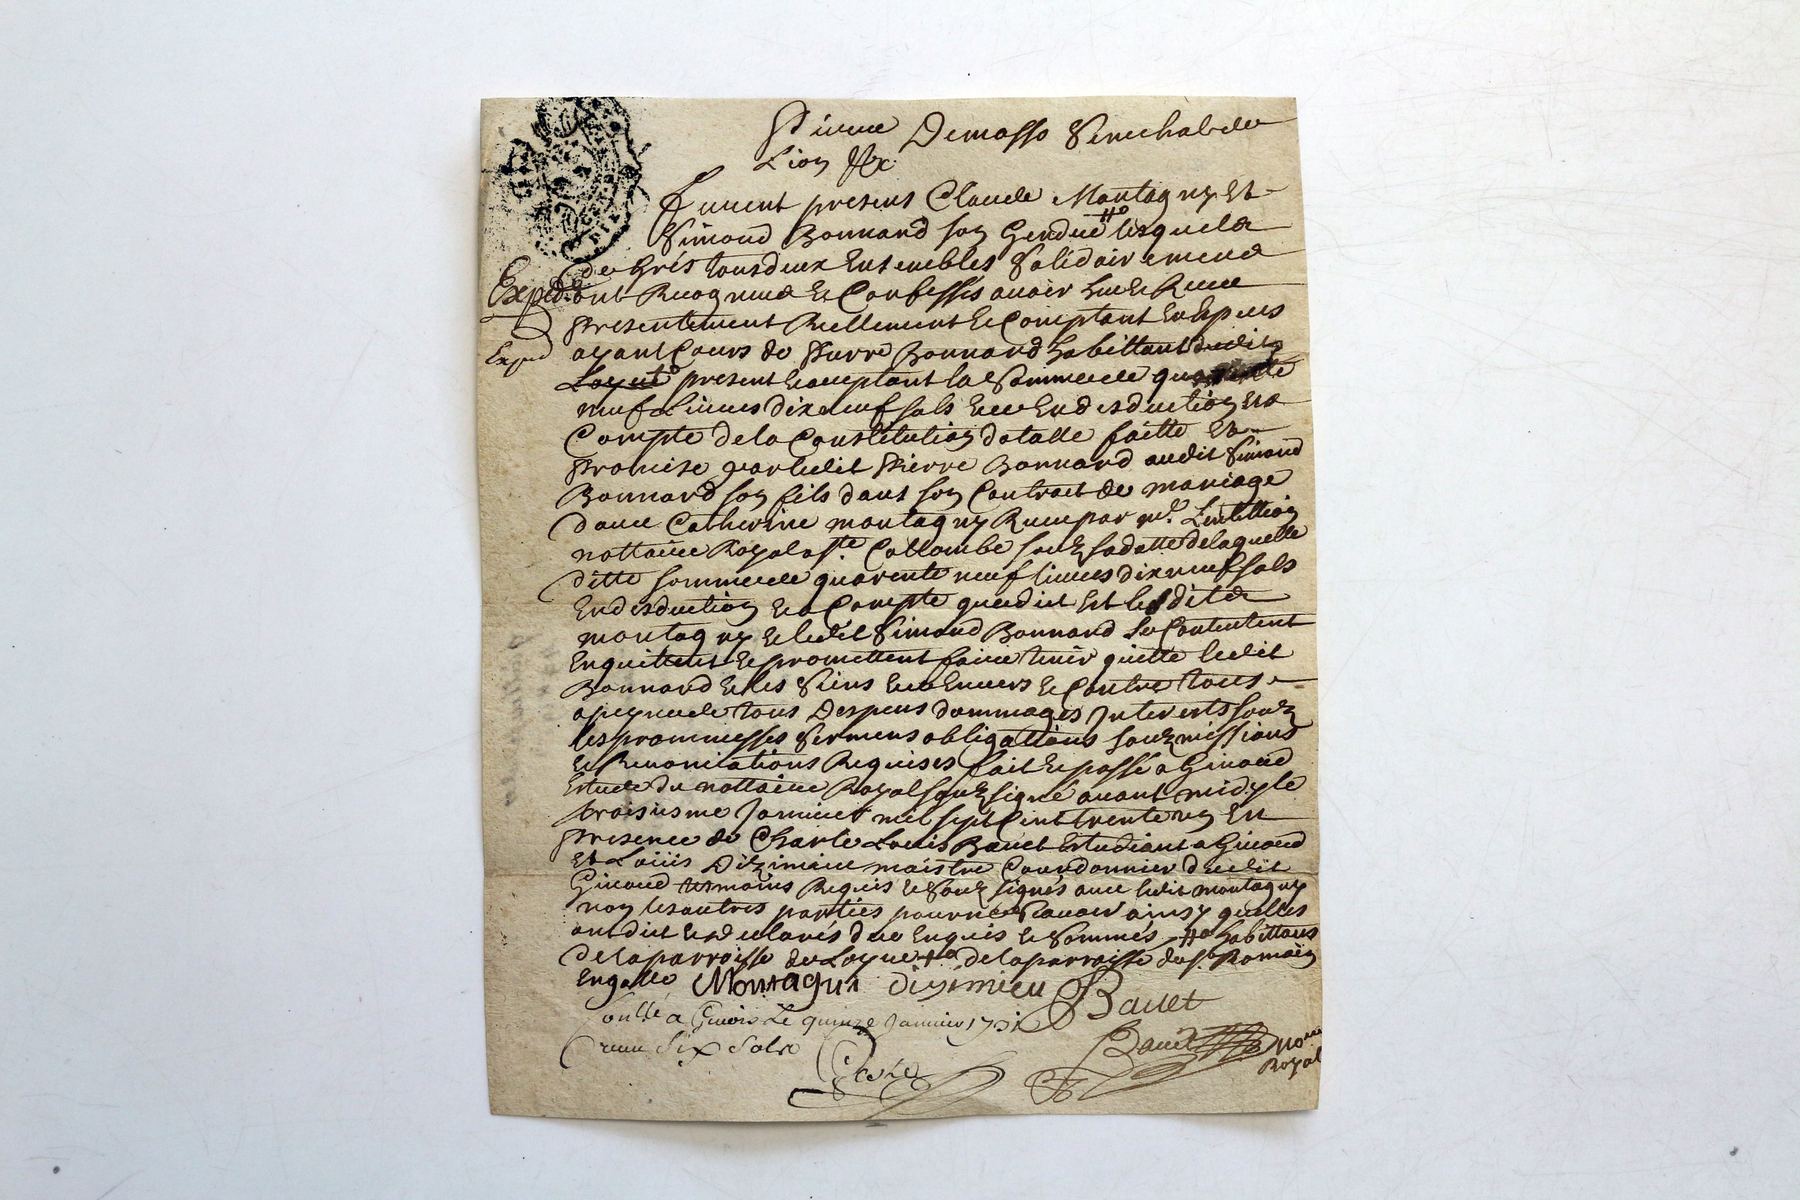 Pierre Demasso Senechal de
Lion &c
Furent presens Claude Montagny Et
Simond Bonnard son Gendre #o lesquels
de Gres tous deux Ensembles Solidairement
Exped. ont Recognus Et Confessés avoir heu Et Receu
presentement Reellement Et Comptant En Especes
Exped ayant Cours de Pierre Bonnard habittant dudit
Layet present Et acceptant la Somme de quarente
neuf Livres dix neuf sols Et ce En desduction Et a
Compte de la Constitution dotalle faitte Et
promise par ledit Pierre Bonnard audit Simond
Bonnard son fils dans son Contract de mariage
d'avec Catherine montagny Receu par me.
nottaire Royal a ste. Collombe souz sa datte de laquelle
ditte somme de quarente neuf livres dix neuf sols
En desduction Et a Compte que dict Est lesdits
montagny Et ledit Simond Bonnard Se Contentent
En quittent Et promettent faire tenir quitte ledit
Bonnard Et les Siens Envers Et Contre tous
a peyne de tous Despens dommages Interests souz
les prommesses Sermens obligattions souzmissions
Et Renonciations Requises fait Et passé a Givord
Estude du nottaire Royal souzsigné avant midy le
troisiesme Janvier mil sept Cent trente un En
presence de Charle Louis Bauet Estudiant a Givord
Et Louis Dizimieu maistre Courdonnier dudit
Givord tesmoins Requis Et Souz signés avec ledit montagny
non les autres parties pour ne Scavoir ainsy quelles
ont dict Et declarés de ce Enquis Et Sommés #o habittans
de la parroisse de Layet de la parroisse de st Romain
En galle Montagni dizimieu Bauet
Conllé a Givors Le quinze Janvier 1731
receu Six Sols
Bauet nore
Royal